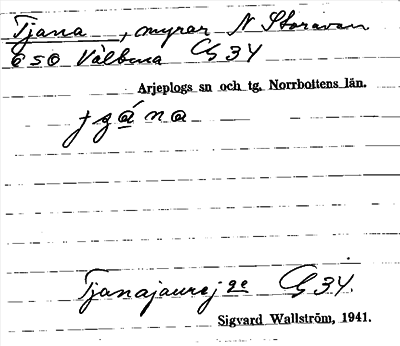 Tjana, myrar N Storavan
o SO Välbma G34
Arjeplogs sn och tg. Norrbottens län.
Tjanajaurej G34.
Sigvard Wallström, 1941.